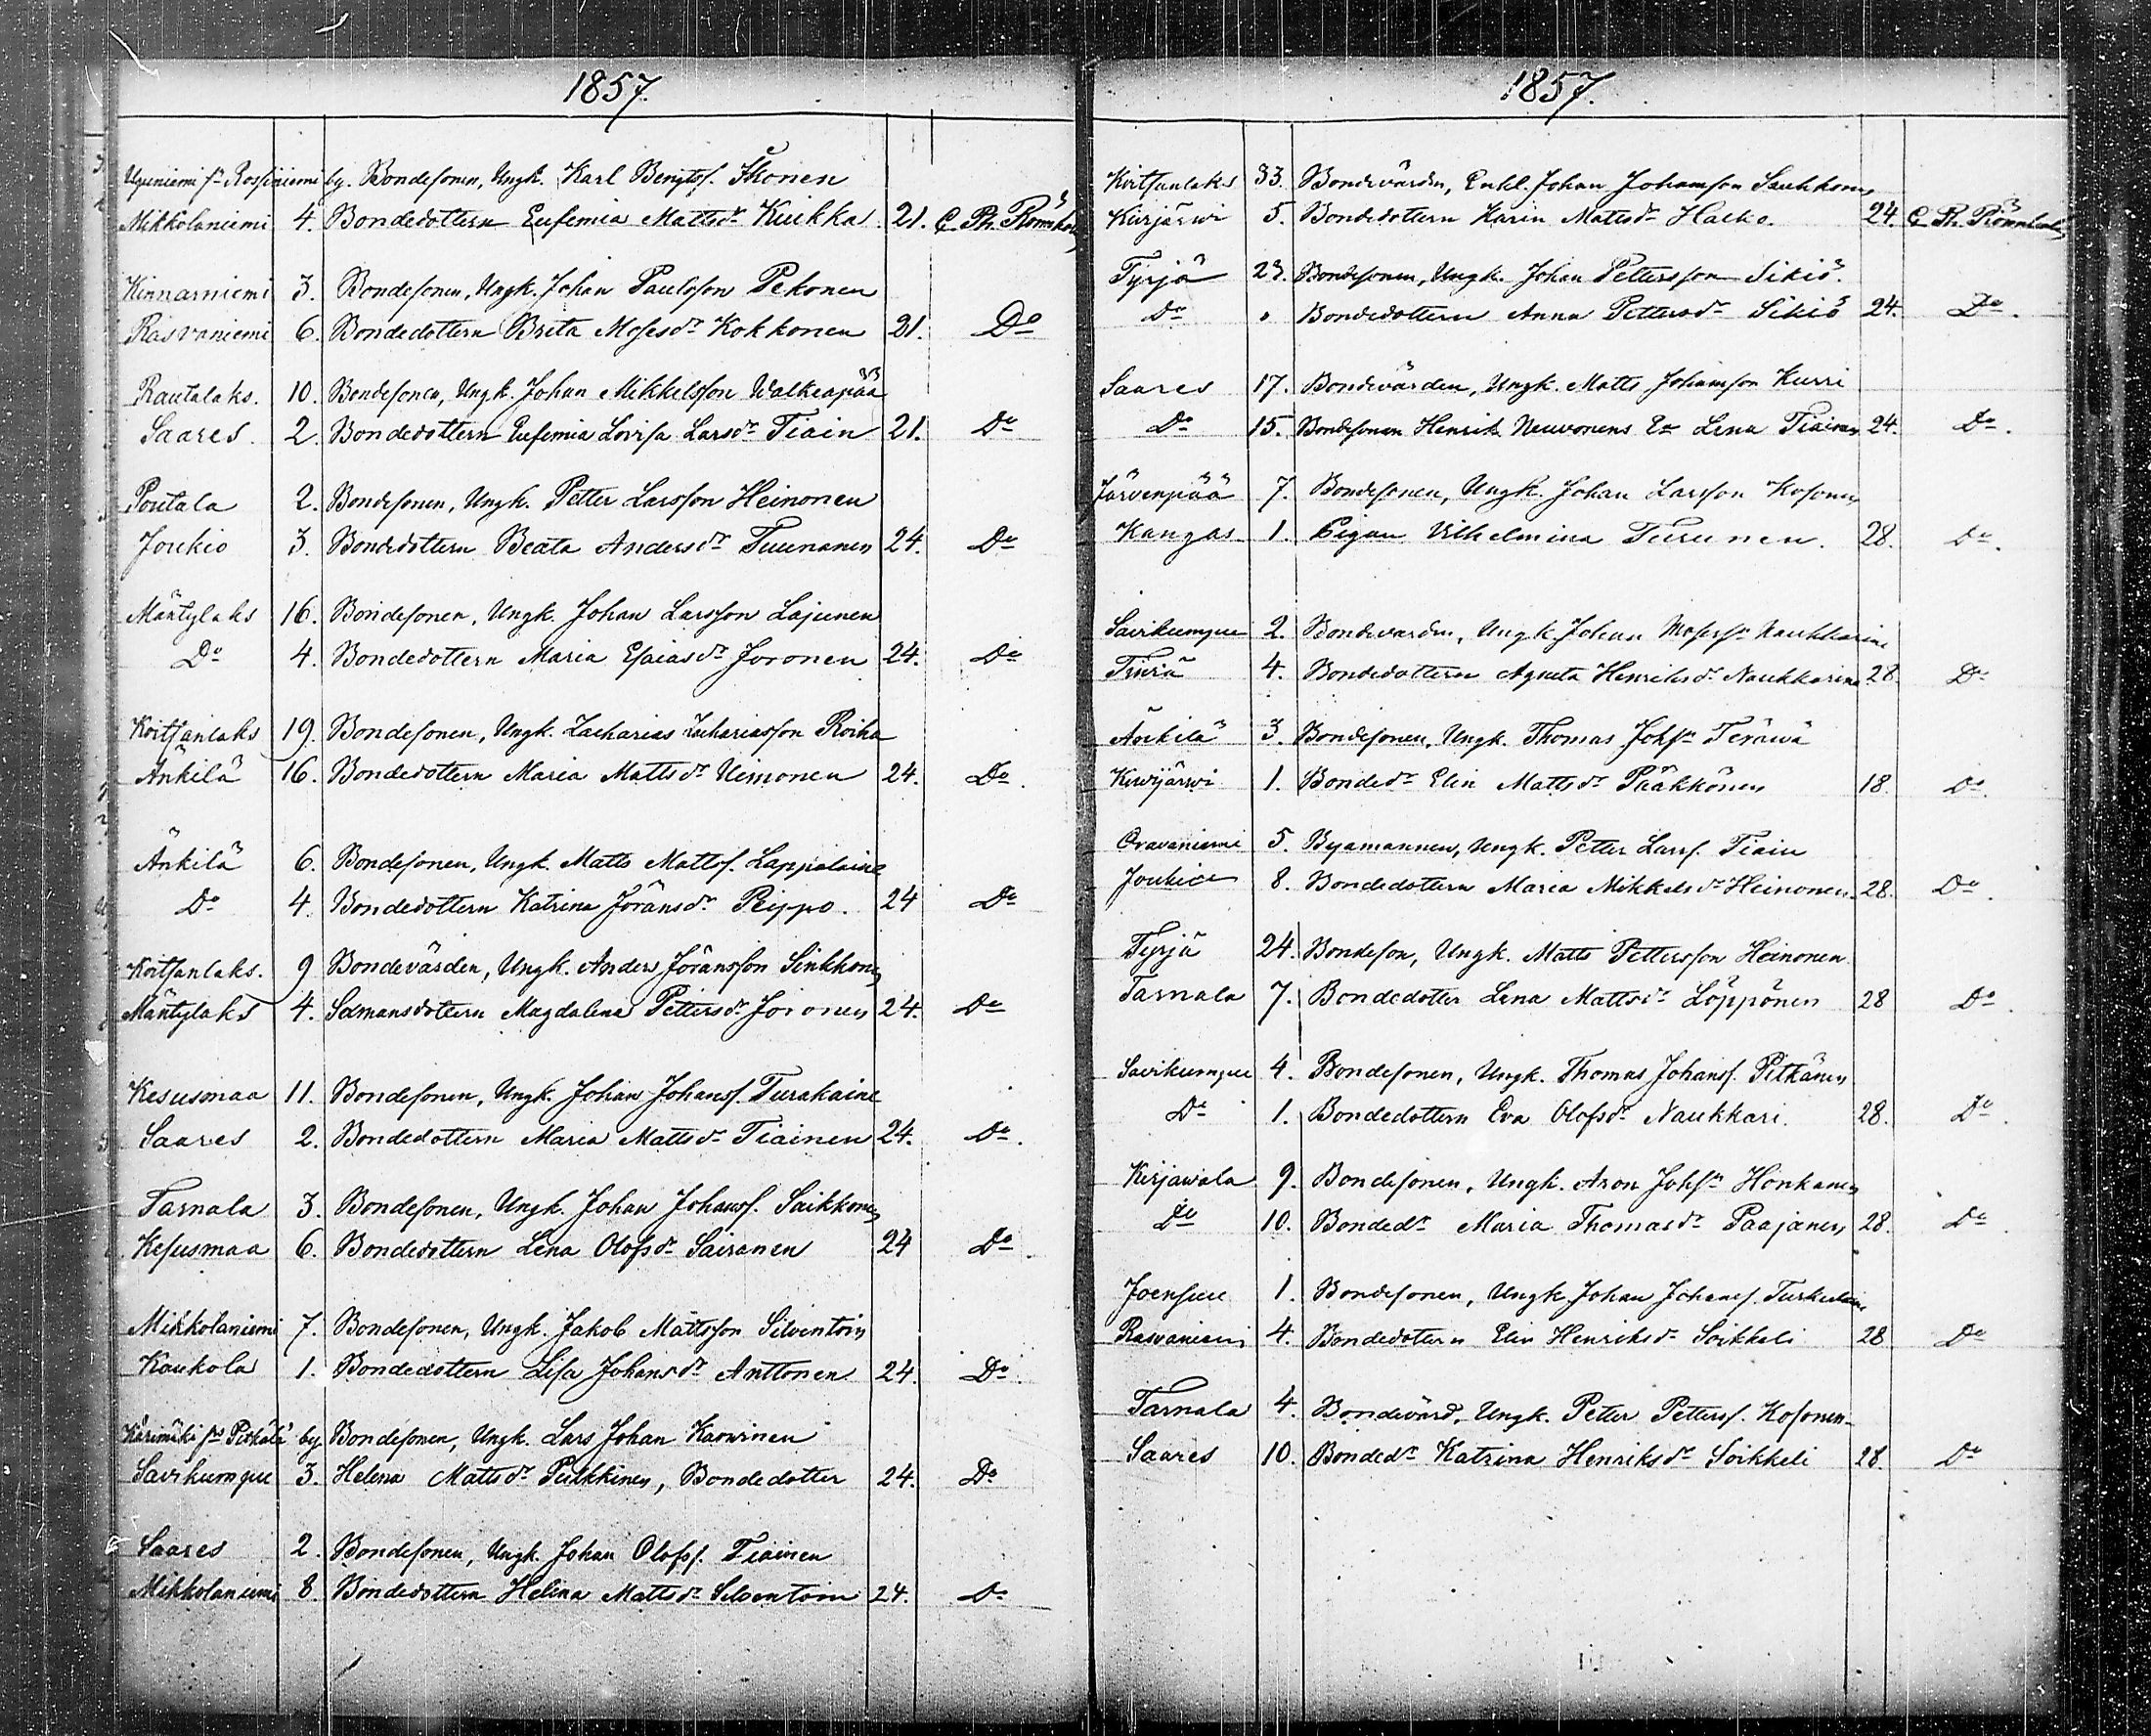 1857.
Uguniemi sn Rossiniemi by. Bondesonen, Ungk. Karl Bengtss. Ikonen
Mikkolaniemi 4. Bondedottern Eufemia Mattsdr Kuikka 21. C. Ph. Rönnholm
Kinnarniemi 3. Bondesonen, Ungk. Johan Paulsson Pekonen
Rasvaniemi 6. Bondedottern Brita Mosesdr Kokkonen 21. Do
Rautalaks. 10. Bondesonen, Ungk. Johan Mikkelsson Walkeapää
Saares. 2. Bondedottern Eufemia Lovisa Larsdr Tiain 21. Do
Poutala 2. Bondesonen, Ungk. Petter Larsson Heinonen
Joukio 3. Bondedottern Beata Andersdr Tuunanen 24. Do
Mäntylaks 16. Bondesonen, Ungk. Johan Larsson Lajunen
Do 4. Bondedottern Maria Esaiasdr Joronen 24. Do
Koitsanlaks 19. Bondesonen, Ungk. Zacharias Zachariasson Roiha
Änkilä 16. Bondedottern Maria Mattsdr Uimonen 24. Do.
Änkilä 6. Bondesonen, Ungk. Matts Mattss. Lappalaine
Do 4. Bondedottern Katrina Jöransdr Peippo. 24 Do
Koitsanlaks. 9 Bondevärden, Ungk. Anders Jöransson Sinkkonen
Mäntylaks 4. Sexmansdottern Magdalena Pettersdr Joronen 24. Do
Kesusmaa 11. Bondesonen, Ungk. Johan Johanss. Turakaine
Saares 2. Bondedottern Maria Mattsdr Tiainen 24. Do.
Tarnala 3. Bondesonen, Ungk. Johan Johanss. Saikkonen
Kesusmaa 6. Bondedottern Lena Olofsdr Sairanen 24 Do.
Mikkolaniemi 7. Bondesonen, Ungk. Jakob Mattsson Silventoin
Koukola 1. Bondedottern Lisa Johansdr Anttonen 24. Do.
Kärimäki sns by Bondesonen, Ungk. Lars Johan Karvinen
Savikumpu 3. Helena Mattsdr Pulkkinen, Bondedotter 24. Do
Saares 2. Bondesonen, Ungk. Johan Olofss. Tiainen
Mikkolaniemi 8. Bondedottern Helena Mattsdr Silventoin 24. Do
1857.
Koitsanlaks 33. Bondevärden, Enkl. Johan Johansson Saukkonen
Kirjärwi 5. Bondedottern Karin Mattsdr Halko. 24. C. Ph. Rönnholm
Tyrjä 23. Bondesonen, Ungk. Johan Pettersson Sikiö.
Do " Bondedottern Anna Pettersdr Sikiö 24. Do.
Saares 17. Bondevärden, Ungk. Matts Johansson Kurri
Do 15. Bondesonen Henrik Neuvonens Ea Lena Tiainen 24. Do.
Järvenpää 7. Bondesonen, Ungk. Johan Larsson Kosonen
Kangas 1. Pigan Vilhelmina Turunen. 28. Do.
Savikumpu 2. Bondevärden, Ungk. Johan Mosessn Naukkarine
Tiurä 4. Bondedottern Agneta Henriksdr Naukkarinen 28. Do
Änkilä 3. Bondesonen, Ungk. Thomas Johsn Teräwä
Kirjärwi 1. Bondedr Elin Mattsdr Pääkkönen 18. Do.
Oravaniemi 5. Byamannen, Ungk. Petter Larss. Tiain
Joukio 8. Bondedottern Maria Mikkelsdr Heinonen. 28. Do.
Tyrjä 24. Bondeson, Ungk. Matts Pettersson Heinonen.
Tarnala 7. Bondedotter Lena Mattsdr Löppönen 28 Do.
Savikumpu 4. Bondesonen, Ungk. Thomas Johanss. Pitkänen
Do 1. Bondedottern Eva Olofsdr Naukkari. 28. Do.
Kirjawala 9. Bondesonen, Ungk. Aron Johsn Honkanen
Do 10. Bondedr Maria Thomasdr Paajanen 28. Do.
Joensuu 1. Bondesonen, Ungk. Johan Johanss. Turkulaine
Rasvaniemi 4. Bondedottern Elin Henriksdr Soikkeli 28 Do
Tarnala 4. Bondevärd. Ungk. Peter Petterss. Kosonen
Saares 10. Bondedr Katrina Henriksdr Soikkeli 28. Do